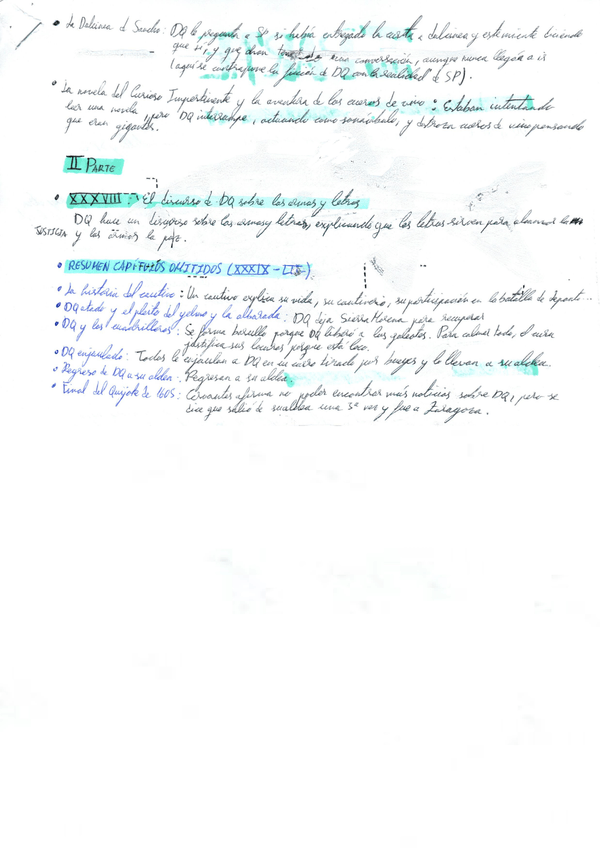 • La Dulcinea d Sancho: DQ le pregunta a SP si había entregado la carta a Dulcinea y este miente diciendo
que sí, y que una conversación, aunque nunca llegón a ir
(aquí se contrapone la ficción de DQ con la realidad de SP).
• La novela del Curioso Impertinente y la aventura de los cueros de vino: Estaban intentando
leer una novela, pero DQ interrumpe, actuando como sonámbulo, y destroza cueros de vino pensando
que eran gigantes.
II PARTE
• XXXVIII: El discurso de DQ sobre las armas y letras
DQ hace un discurso sobre las armas y letras, explicando que las letras sirven para alcanzar la
JUSTICIA y las armas la paz.
• RESUMEN CAPÍTULOS OMITIDOS (XXXIX - LII).
• La historia del cautivo: Un cautivo explica su vida, su cautiverio, su participación en la batalla de Lepanto...
• DQ atado y el pleito del yelmo y la albarada: DQ deja Sierra Morena para recuperar
• DQ y los cuadrilleros: Se forma barullo porque DQ liberó a los galeotes. Para calmar todo, el cura
justifica sus locuras porque está loco.
• DQ enjaulado: Todos le enjaulan a DQ en un carro tirado por bueyes y lo llevan a su aldea.
• Regreso de DQ a su aldea: Regresan a su aldea.
• Final del Quijote de 1605: Cervantes afirma no poder encontrar más noticias sobre DQ, pero se
dice que salió de su aldea una 3ª vez y fue a Zaragoza.